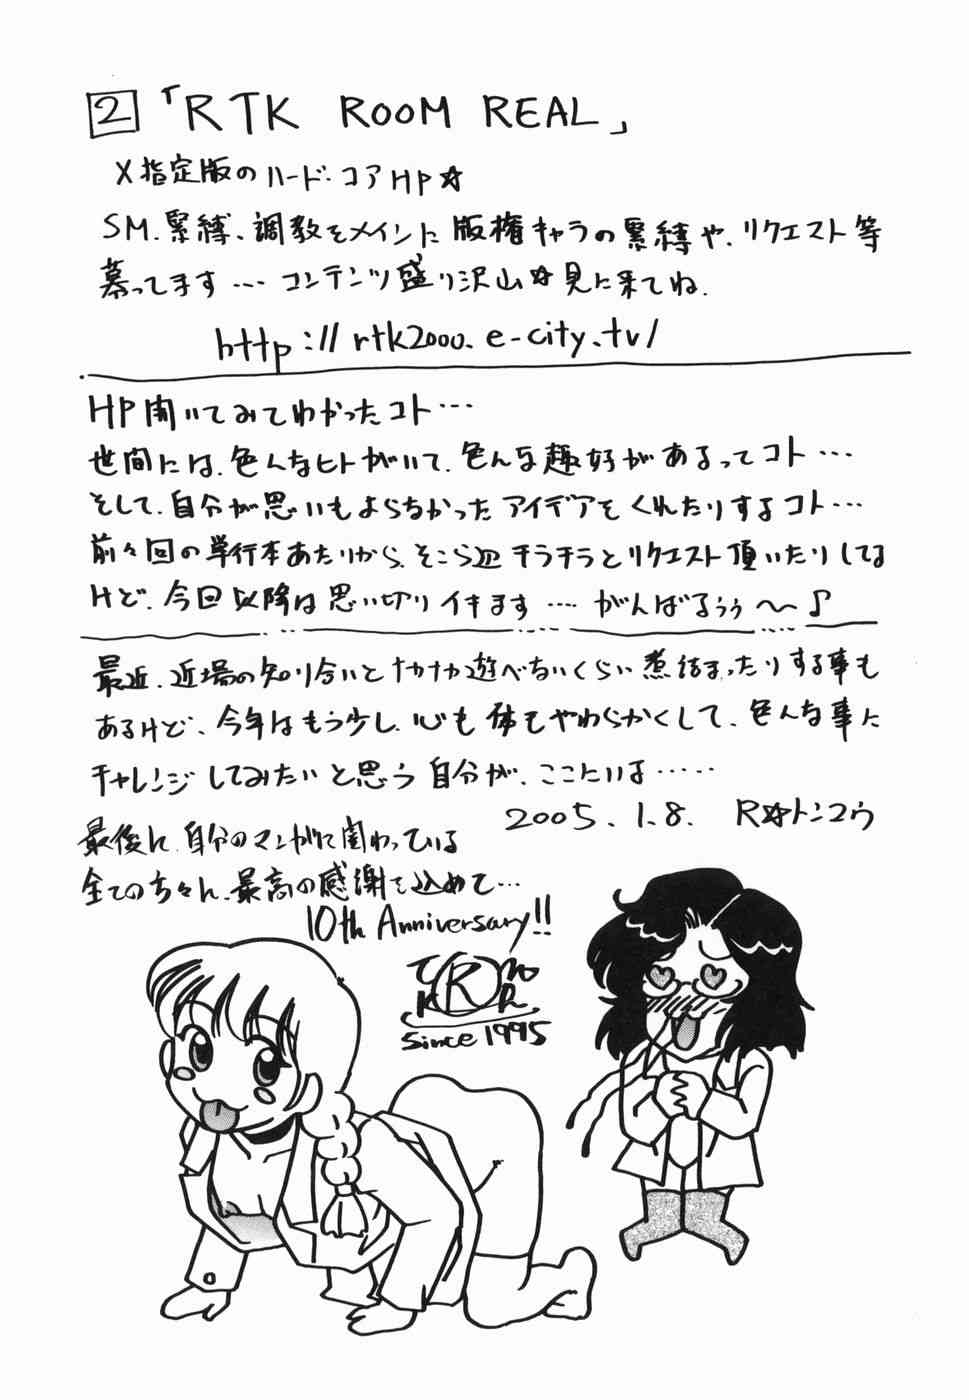 2 「RTK ROOM REAL」
X指定版のハード・コアHP☆
SM、緊縛、調教をメインに版権キャラの緊縛や、リクエスト等
募ってます…コンテンツ盛り沢山☆見に来てね.
http://rtk2000.e-city.tv/
HP開いてみてわかったコト…
世間には、色んなヒトがいて、色んな趣好があるってコト…
そして、自分が思いもよらなかったアイデアをくれたりするコト…
前々回の単行本あたりから、そこら辺チラチラとリクエスト頂いたりしてる
けど、今回以降は思い切りイキます…. がんばるぅぅ〜〜♪
最近、近場の知り合いとナカナカ遊べないくらい煮詰まったりする事も
あるけど、今年はもう少し、心も体もやわらかくして、色んな事に
チャレンジしてみたいと思う自分が、ここにいる……
2005.1.8. R☆トンコウ
最後に、自分のマンガに関わっている
全ての方々へ、最高の感謝を込めて…
10th Anniversary!!
R
Since 1995